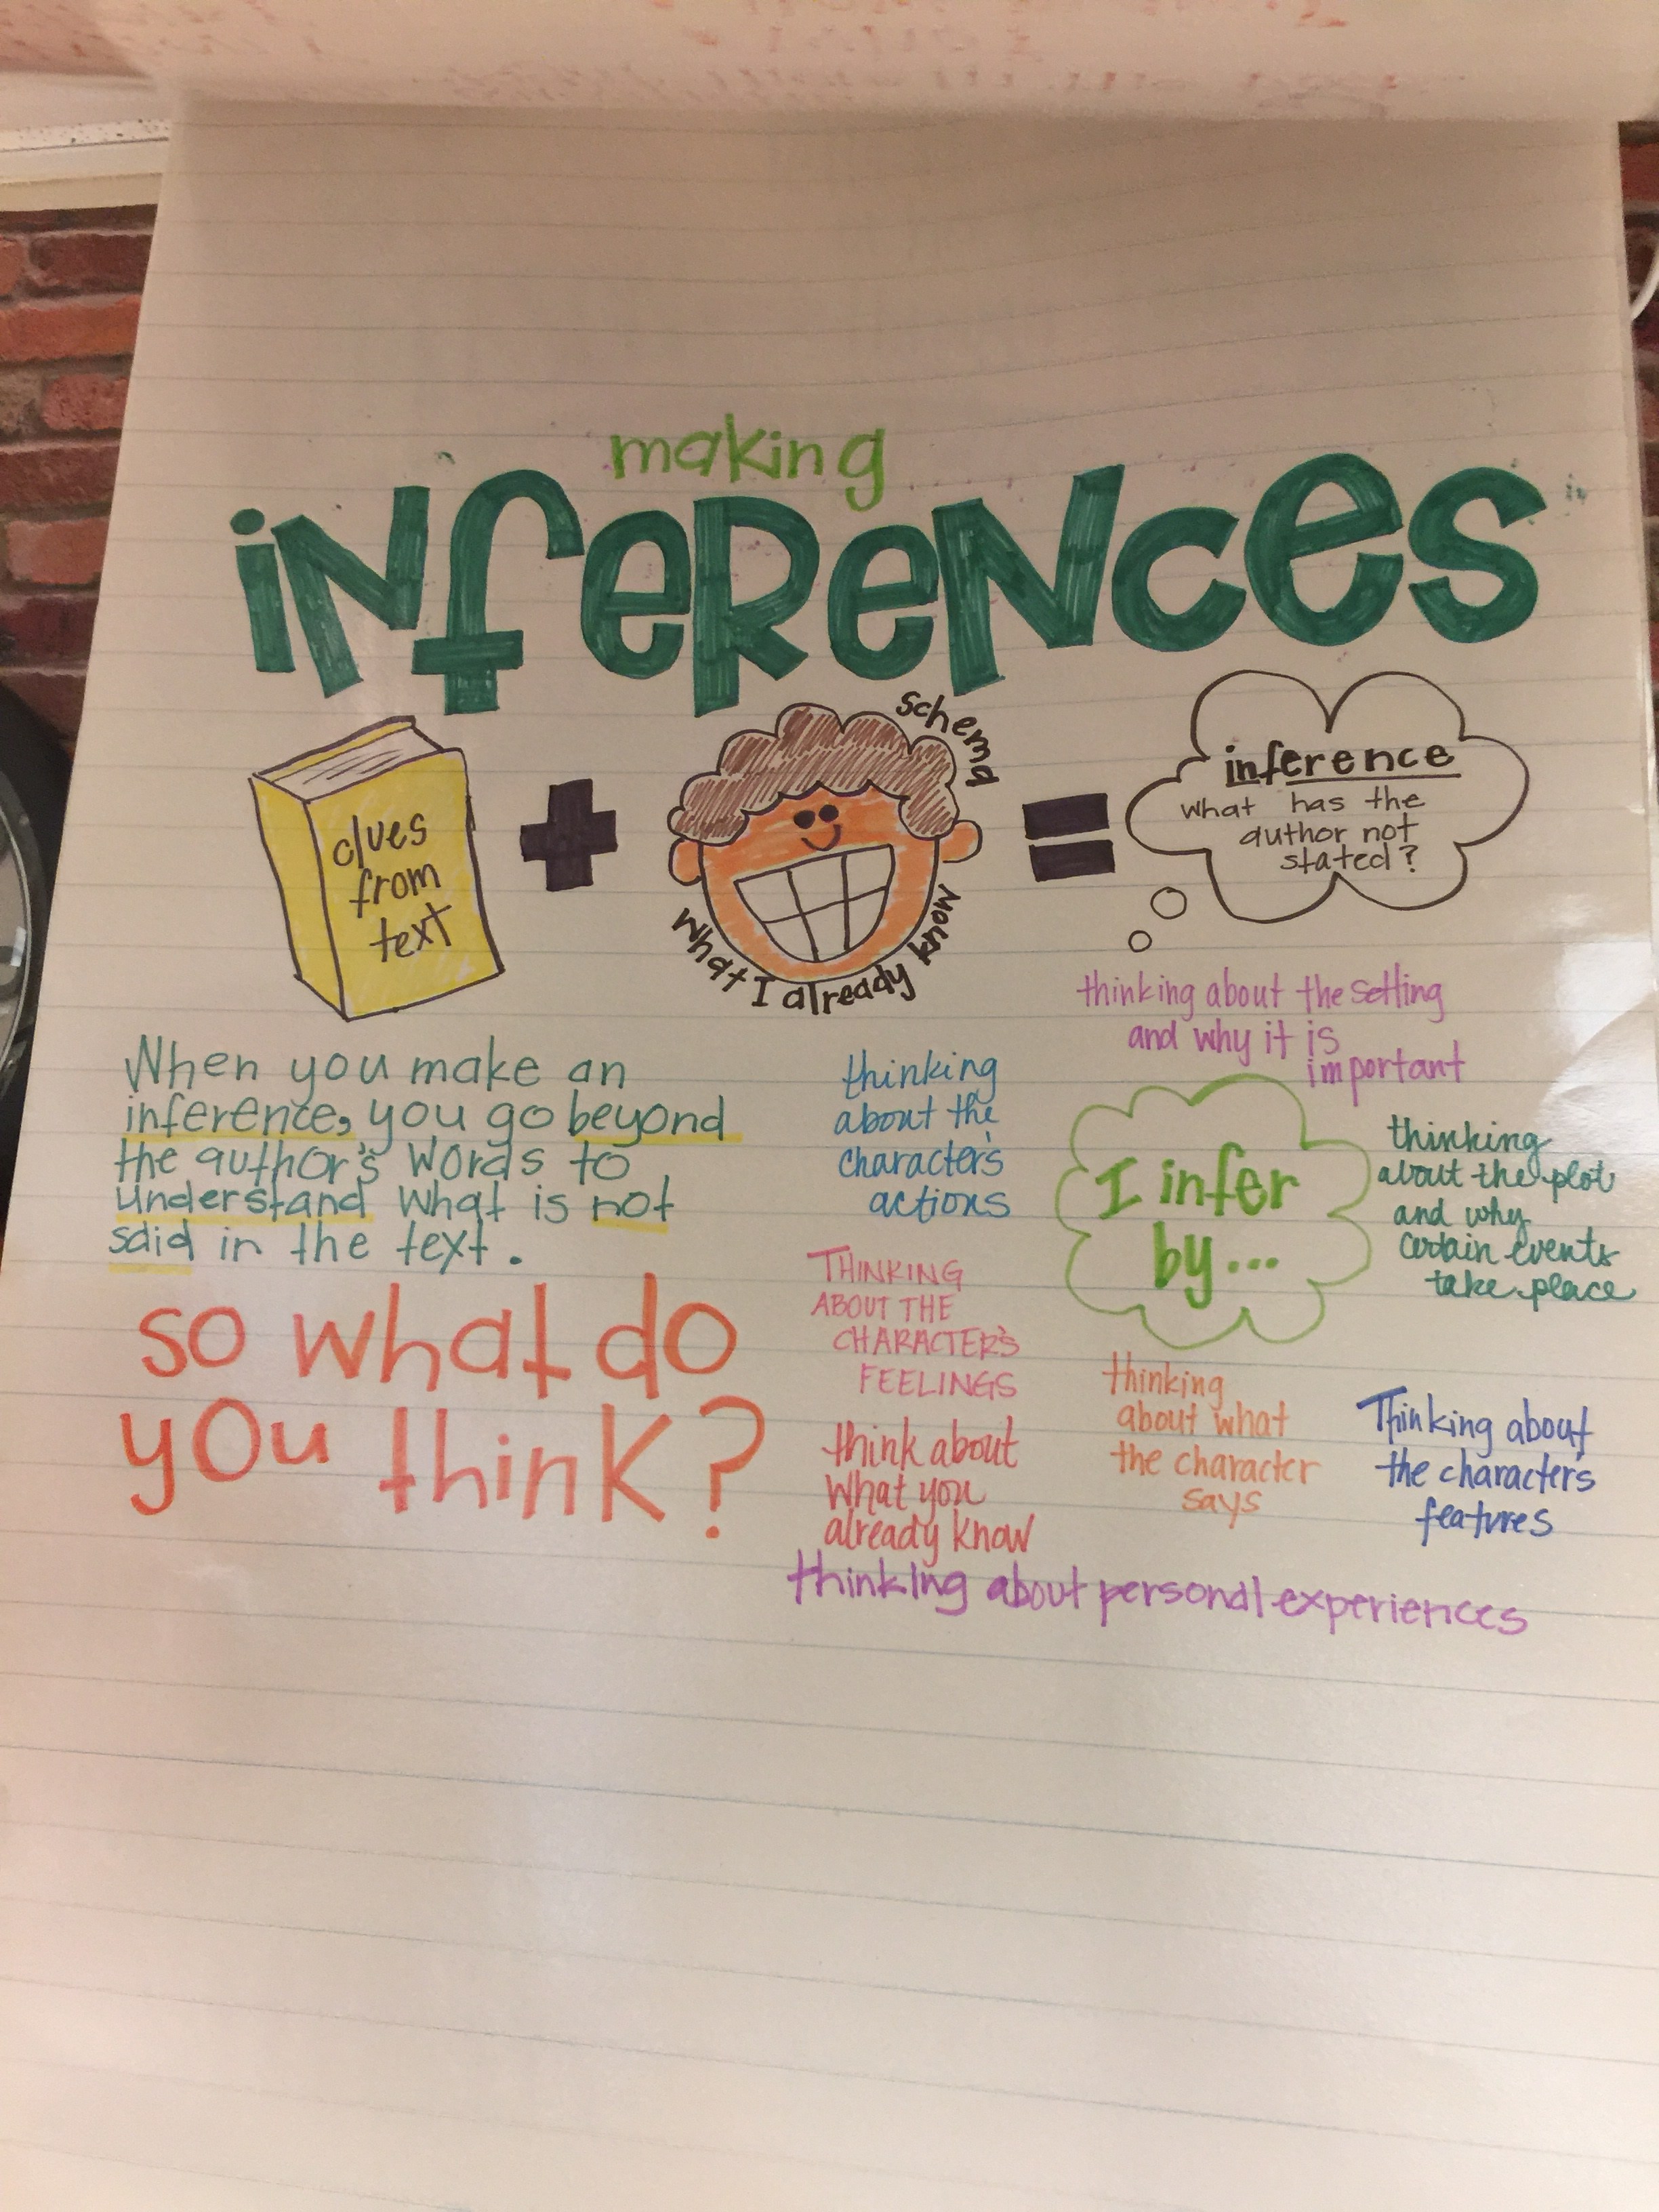 making
iNfeReNces
clues
from
text
schema
What I already know
inference
what has the
author not
stated?
When you make an
inference, you go beyond
the author's words to
understand what is not
said in the text.
so what do
you think?
thinking about the setting
and why it is
important
thinking
about the
character's
actions
I infer
by...
thinking
about the plot
and why
certain events
take place
THINKING
ABOUT THE
CHARACTER'S
FEELINGS
thinking
about what
the character
says
Thinking about
the character's
features
think about
what you
already know
thinking about personal experiences